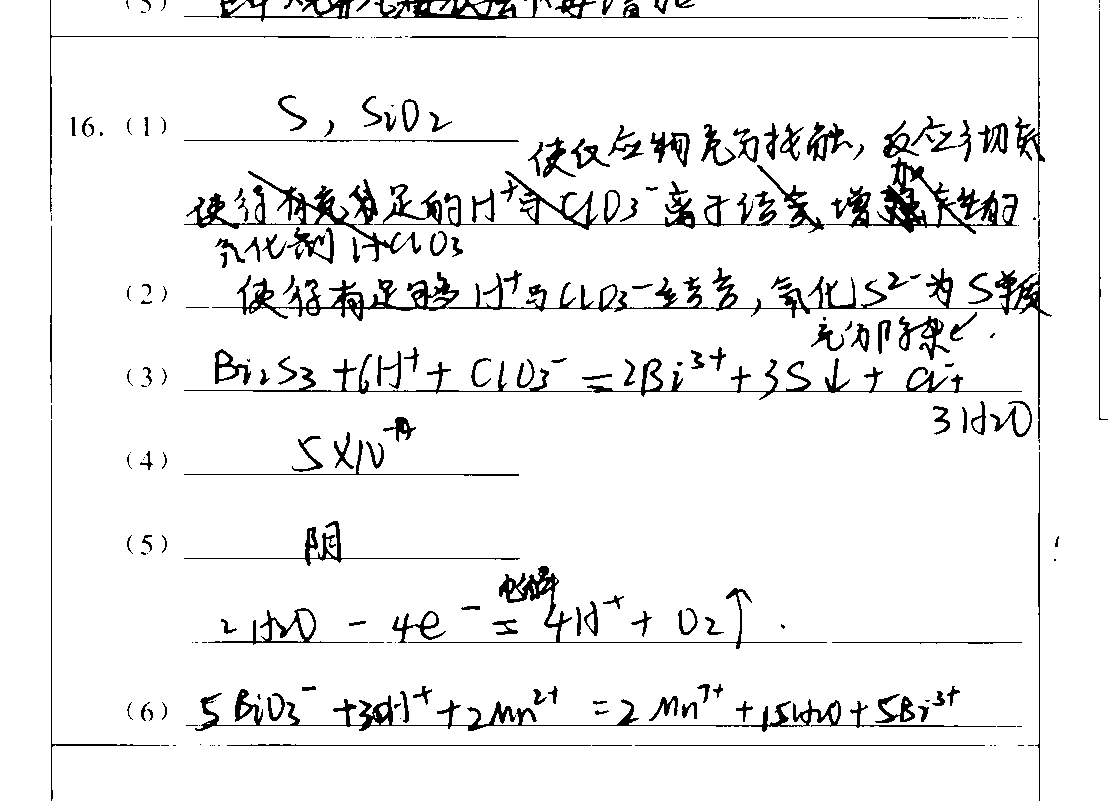 16. (1) S, SiO2
使仅应物充分接触, 反应更切底
使得有充分足的H⁺与ClO3⁻离子结合, 增加
氧化剂HClO3
(2) 使得有足够H⁺与ClO3⁻结合, 氧化S²⁻为S单质
充分除杂
(3) Bi2S3+6H⁺+ClO3⁻=2Bi³⁺+3S↓+Cl⁻+
3H2O
(4) 5×10
(5) 阴
电解
2H2O - 4e⁻ = 4H⁺ + O2↑.
(6) 5BiO3⁻+30H⁺+2Mn²⁺=2Mn⁷⁺+15H2O+5Bi³⁺